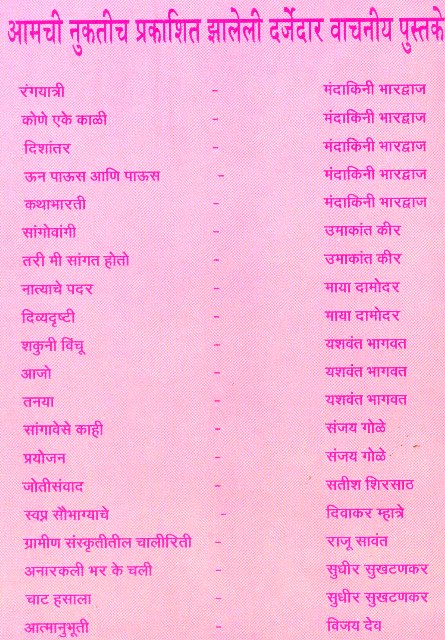 आमची नुकतीच प्रकाशित झालेली दर्जेदार वाचनीय पुस्तके
रंगयात्री - मंदाकिनी भारद्वाज
कोणे एके काळी - मंदाकिनी भारद्वाज
दिशांतर - मंदाकिनी भारद्वाज
ऊन पाऊस आणि पाऊस - मंदाकिनी भारद्वाज
कथाभारती - मंदाकिनी भारद्वाज
सांगोवांगी - उमाकांत कीर
तरी मी सांगत होतो - उमाकांत कीर
नात्याचे पदर - माया दामोदर
दिव्यदृष्टी - माया दामोदर
शकुनी विंचू - यशवंत भागवत
आजो - यशवंत भागवत
तनया - यशवंत भागवत
सांगावेसे काही - संजय गोळे
प्रयोजन - संजय गोळे
जोतीसंवाद - सतीश शिरसाठ
स्वप्न सौभाग्याचे - दिवाकर म्हात्रे
ग्रामीण संस्कृतीतील चालीरिती - राजू सावंत
अनारकली भर के चली - सुधीर सुखटणकर
चाट हसाला - सुधीर सुखटणकर
आत्मानुभूती - विजय देव